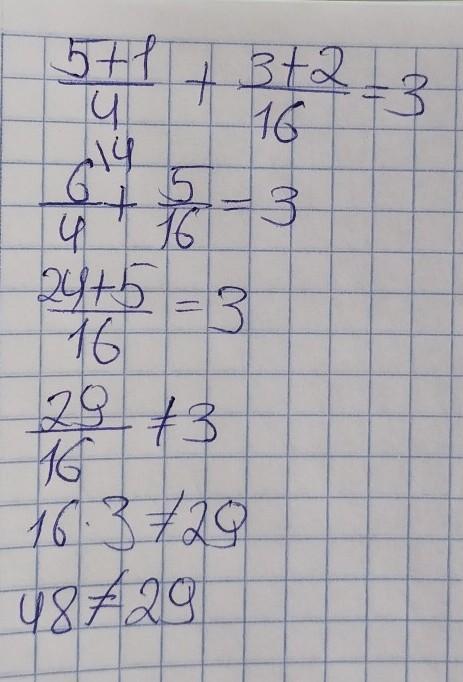 5+1/4 + 3+2/16 = 3
6\4/4 + 5/16 = 3
24+5/16 = 3
29/16 ≠ 3
16·3 ≠ 29
48 ≠ 29